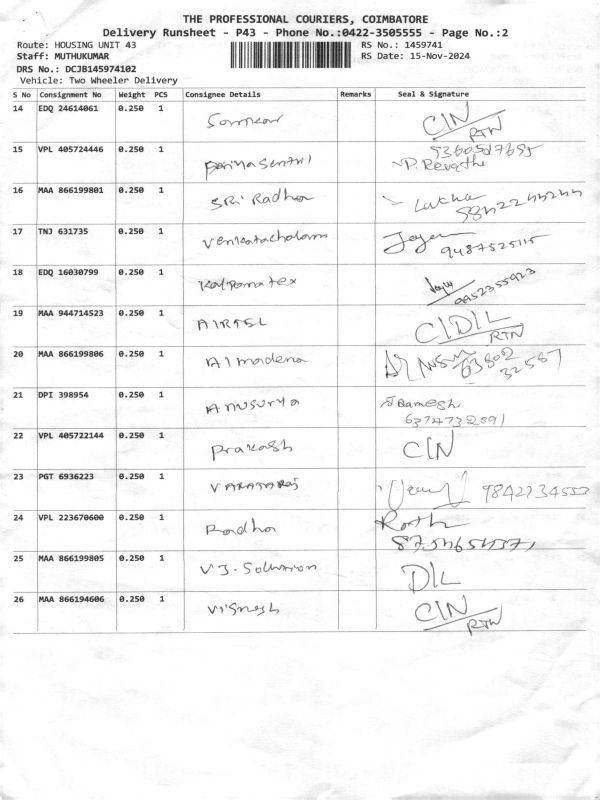 THE PROFESSIONAL COURIERS, COIMBATORE
Delivery Runsheet - P43 - Phone No.:0422-3505555 - Page No.:2
Route: HOUSING UNIT 43 RS No.: 1459741
Staff: MUTHUKUMAR RS Date: 15-Nov-2024
DRS No.: DCJB145974102
Vehicle: Two Wheeler Delivery
S No Consignment No Weight PCS Consignee Details Remarks Seal & Signature
14 EDQ 24614061 0.250 1 CIN
RTN
15 VPL 405724446 0.250 1
P. Revathi
16 MAA 866199801 0.250 1 Sri Radha
17 TNJ 631735 0.250 1 Venkatachalam
9487525115
18 EDQ 16030799 0.250 1 Kalpana tex
9952355923
19 MAA 944714523 0.250 1 AIRTEL C/DIL
RTN
20 MAA 866199806 0.250 1 Almadena
21 DPI 398954 0.250 1 Anusurya Ramesh
6374732891
22 VPL 405722144 0.250 1 Prakash CIN
23 PGT 6936223 0.250 1
24 VPL 223670600 0.250 1 Radha
25 MAA 866199805 0.250 1 V.J. Solution DIL
26 MAA 866194606 0.250 1 Vignesh CIN
RTN